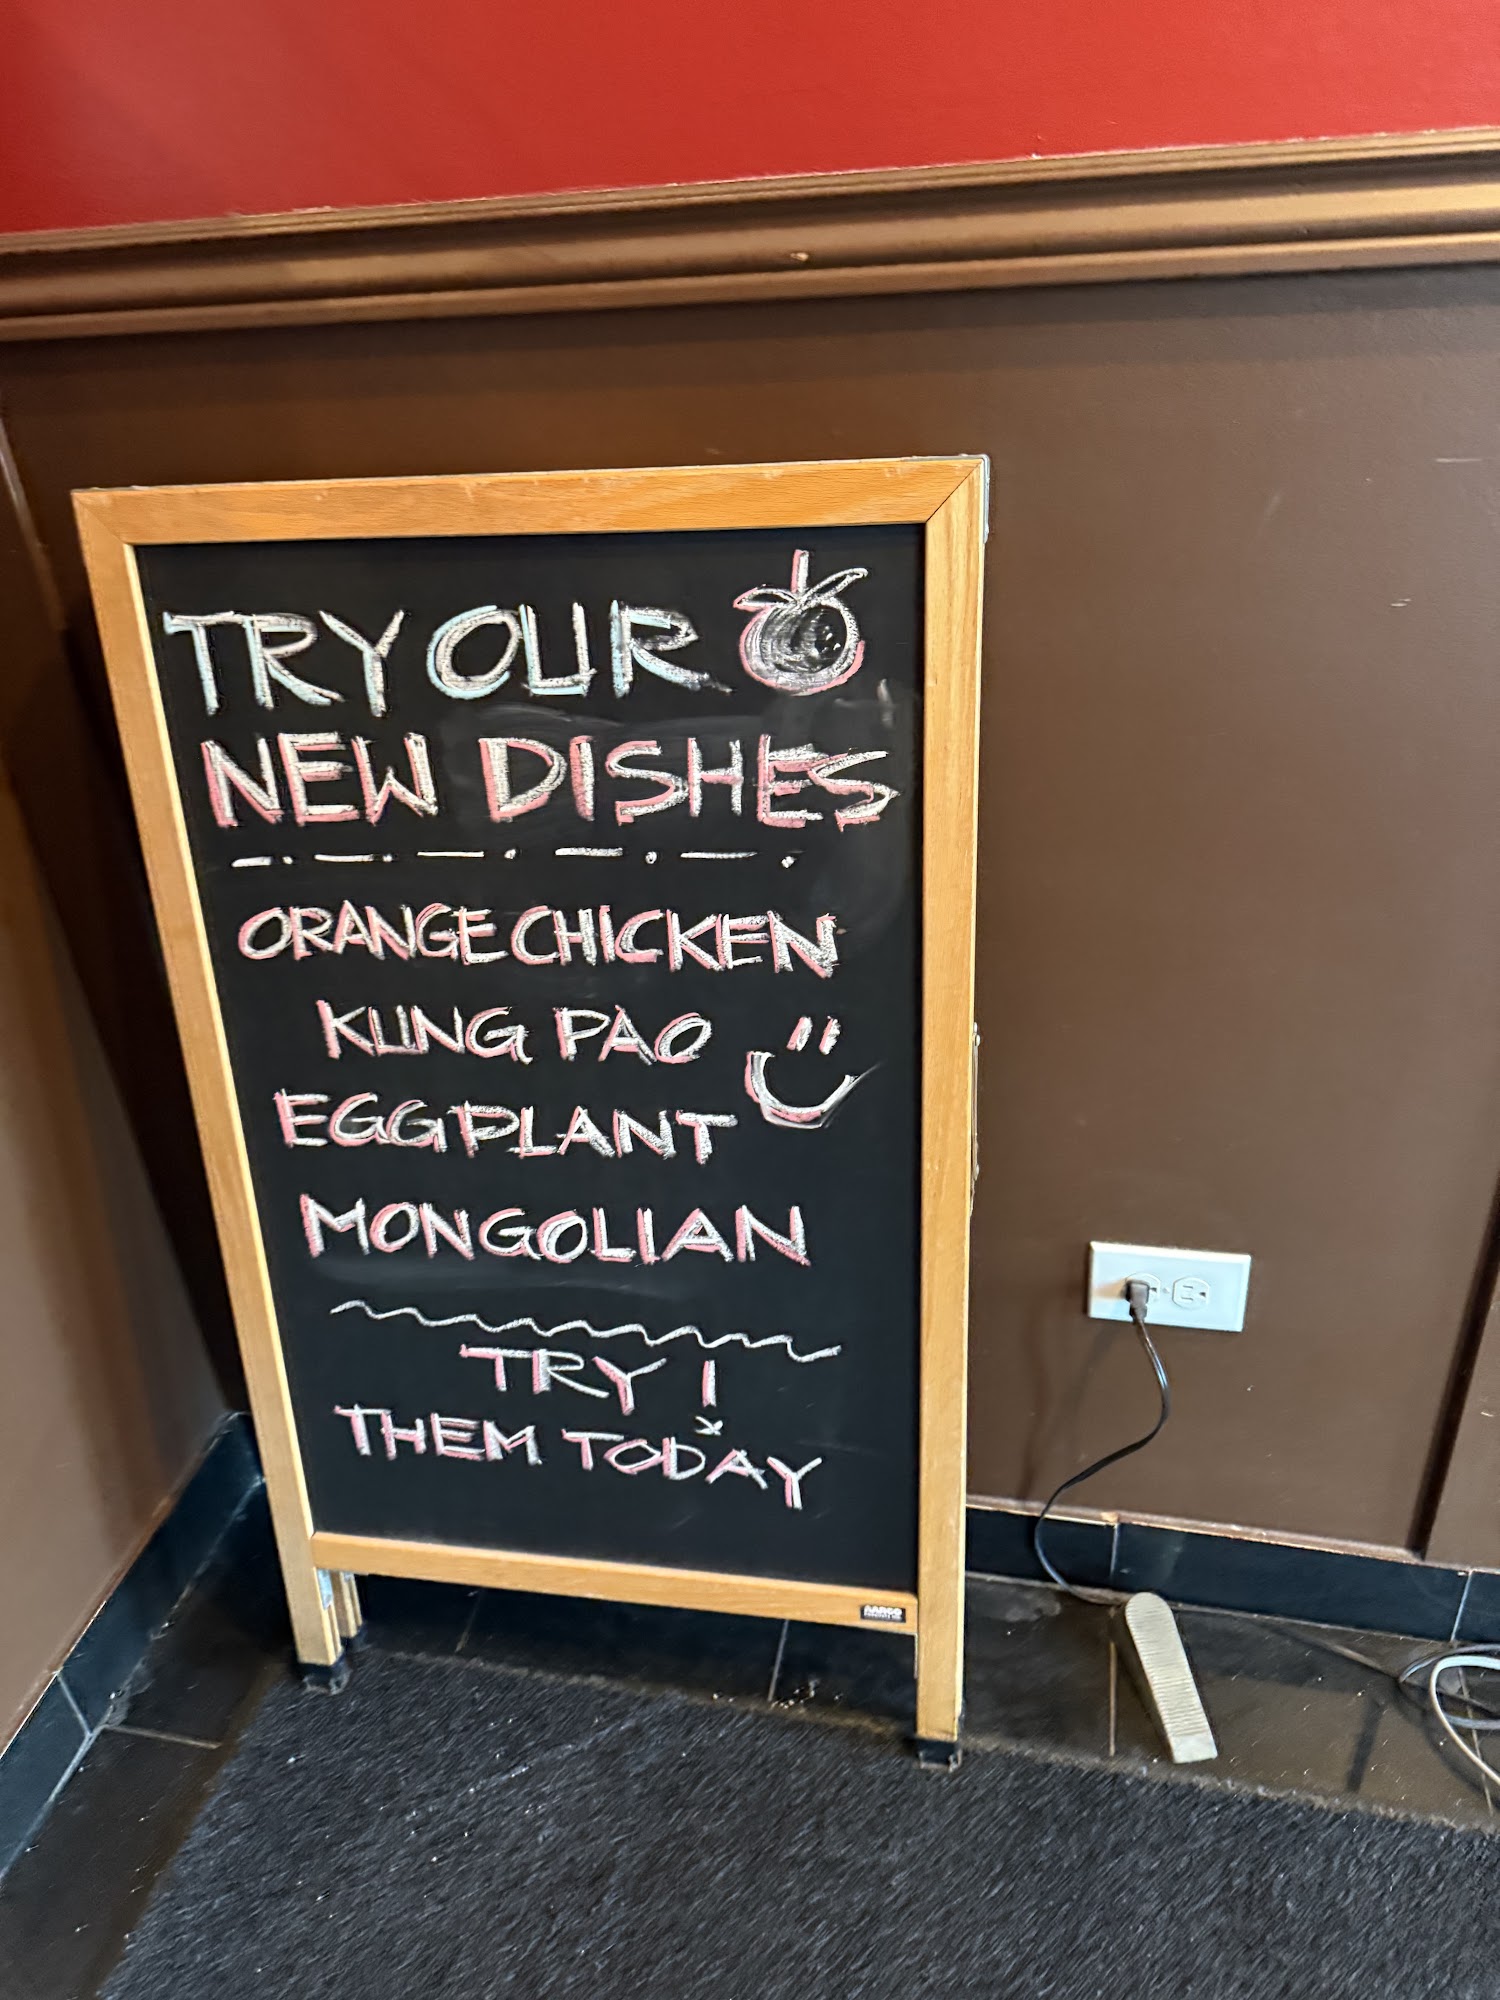 TRY OUR
NEW DISHES
ORANGE CHICKEN
KUNG PAO
EGGPLANT
MONGOLIAN
TRY !
THEM TODAY
AARCO